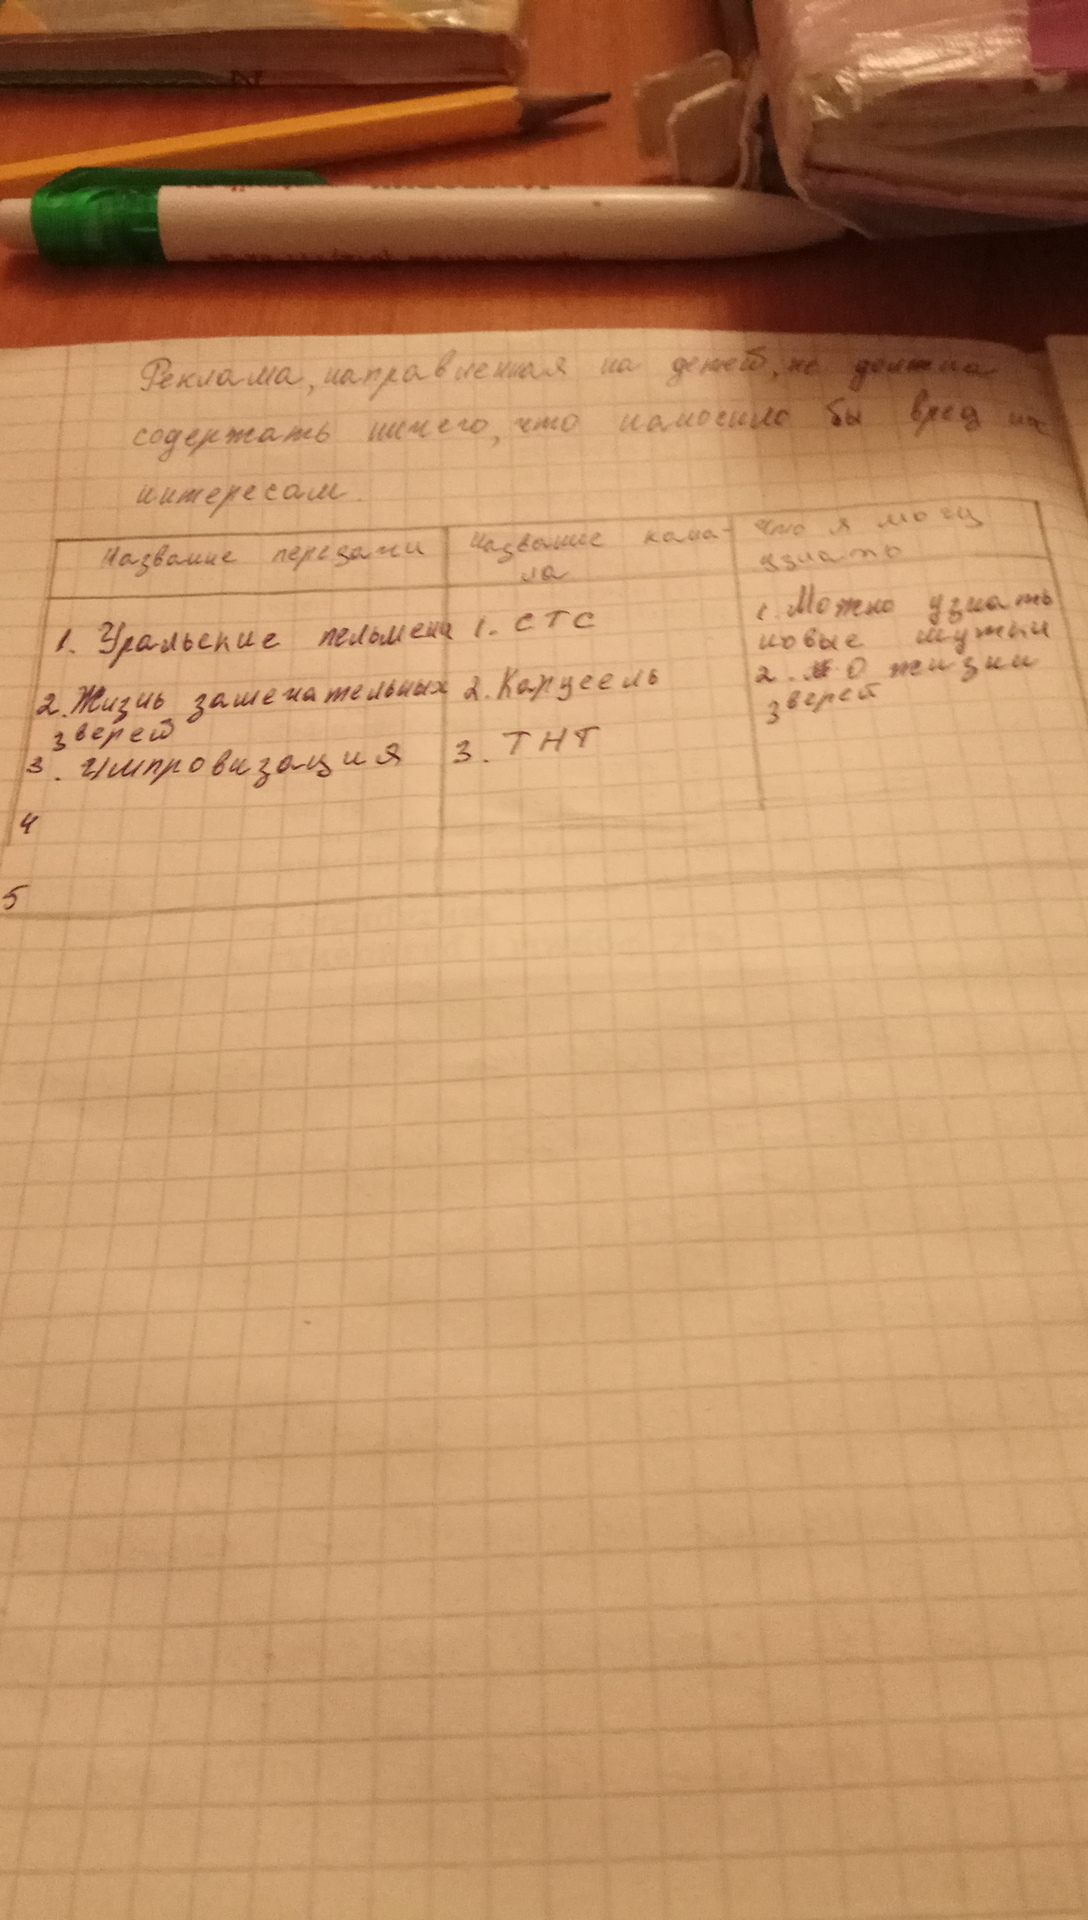 Реклама, направленная на детей, не должна
содержать ничего, что наносило бы вред их
интересам.
Название передачи
Название кана-
ла
Что я могу
узнать
1. Уральские пельмени
1. СТС
1. Можно узнать
новые шутки
2. Жизнь замечательных
зверей
2. Карусель
2. О жизни
зверей
3. Импровизация
3. ТНТ
4
5